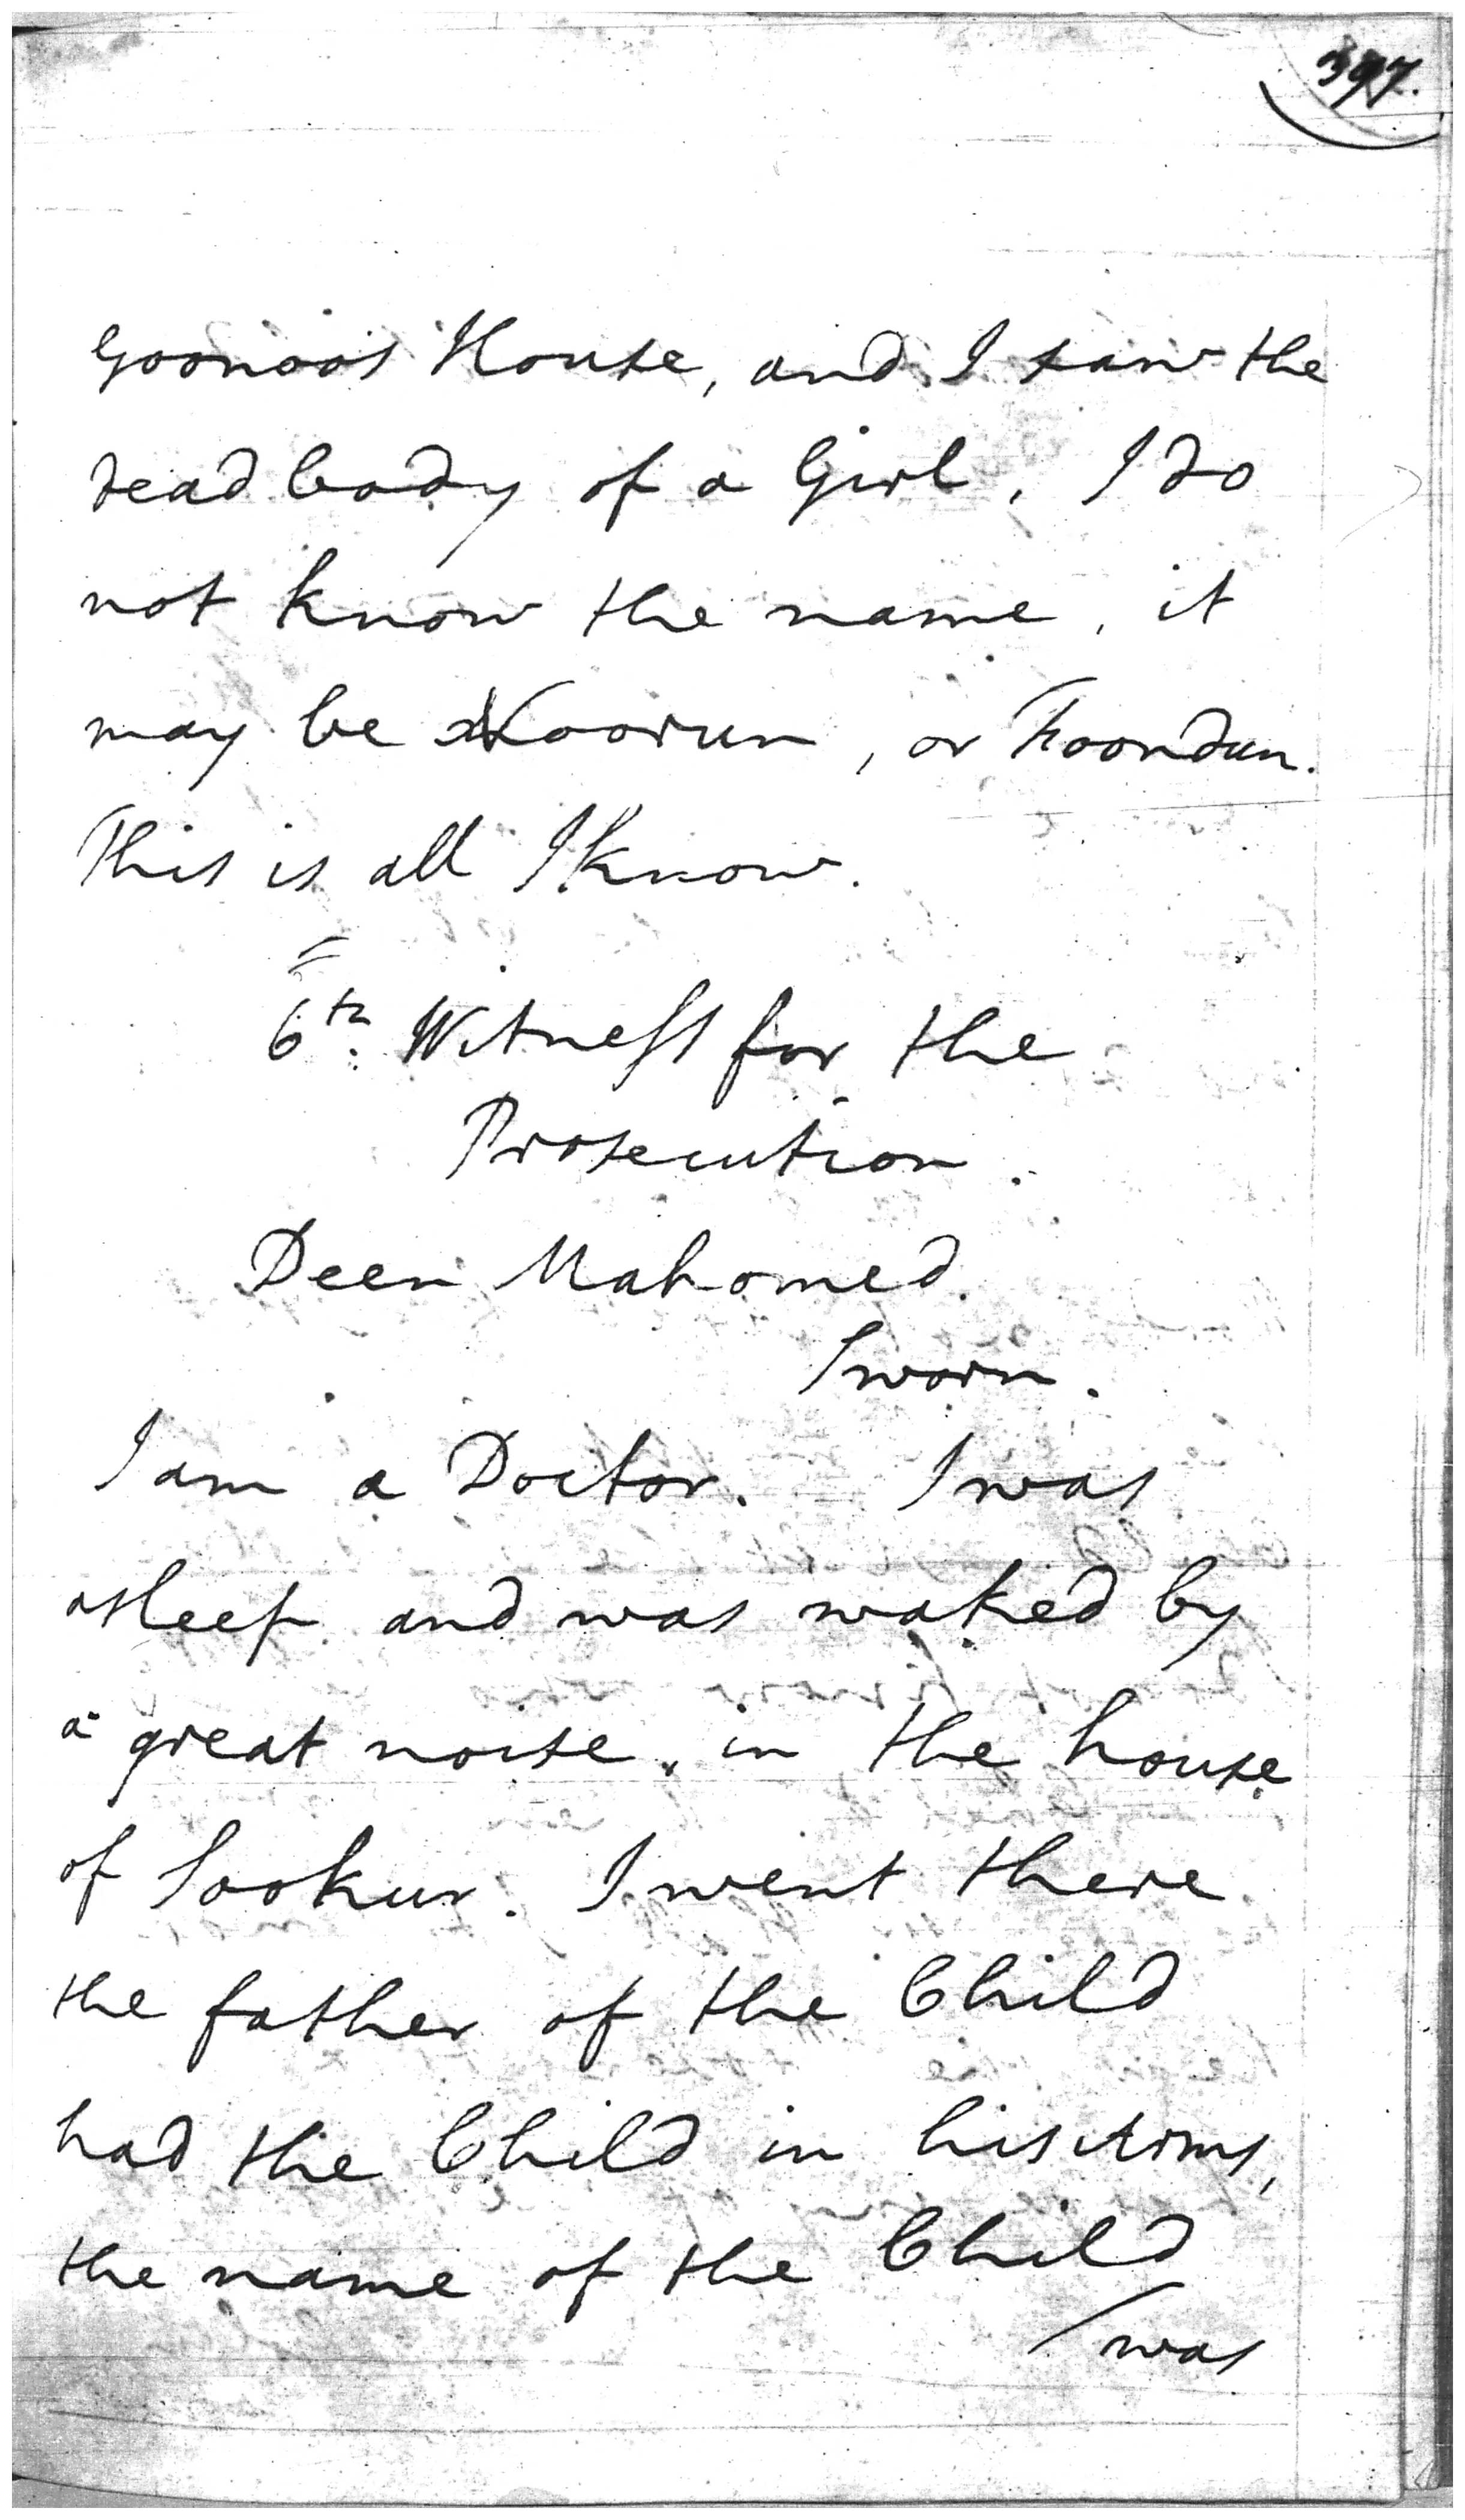 397.
Goonoos House, and I saw the
dead body of a Girl. I do
not know the name, it
may be Noorun, or Foondun.
This is all I know.
6th. Witness for the
Prosecution.
Deen Mahomed.
Sworn.
I am a Doctor. I was
asleep and was waked by
a great noise, in the house
of Sookur. I went there
the father of the Child
had the Child in his Arms,
the name of the Child
/was